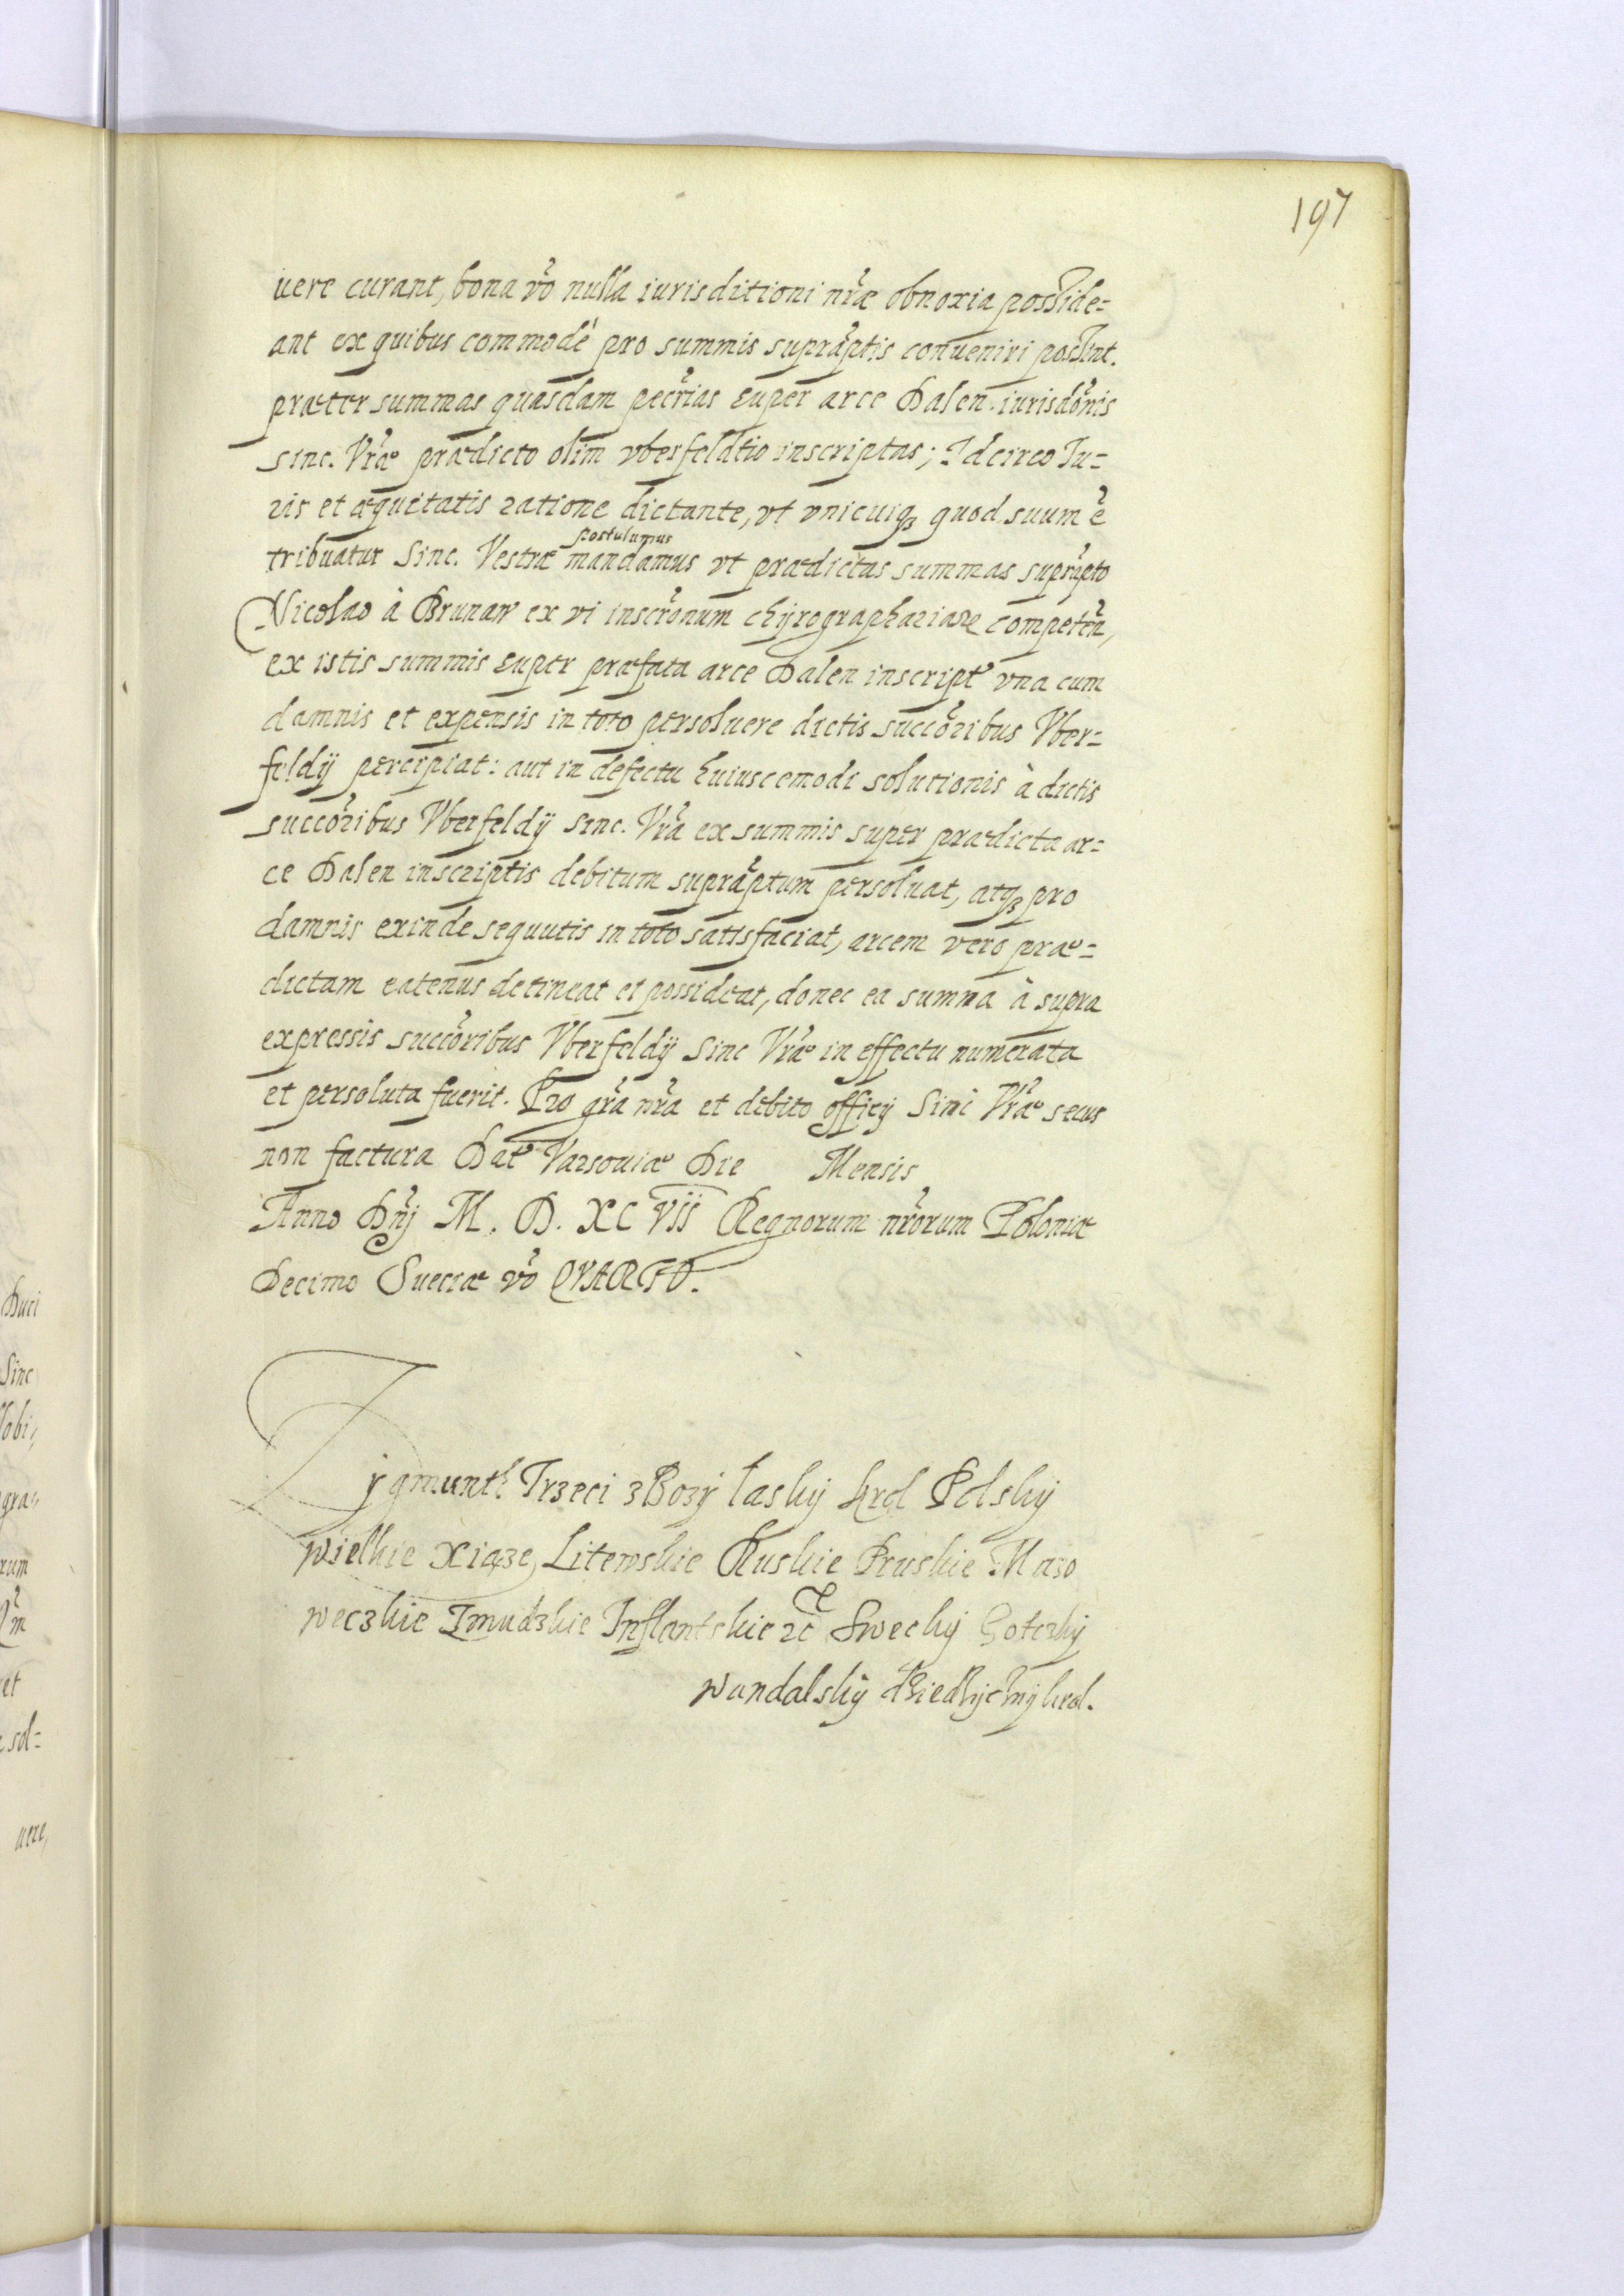 197
uere curant, bona vo nulla iurisditioni nrae obnoxia posside=
ant ex quibus commodè pro summis supraptis conueniri possint.
praeter summas quasdam pecrias super arce Dalen iurisdonis
sinc. Vrae praedicto olim vberfeldtio inscriptas; Idcirco Iu=
ris et aequitatis ratione dictante, vt vnicuiqz quod suum e
postulamus
tribuatur Sinc. Vestrae mandamus vt praedictas summas suprapto
Nicolao à Brunaw ex vi inscronum chyrographariare competen,
ex istis summis super praefata arce Dalen inscript vna cum
damnis et expensis in toto persoluere dictis succoribus Vber=
feldij percipiat: aut in defectu huiuscemodi solutionis à dictis
succoribus Vberfeldij sinc. Vra ex summis super praedicta ar=
ce Dalen inscriptis debitum supraptum persoluat, atqz pro
damnis exinde sequutis in toto satisfaciat, arcem vero prae=
dictam eatenus detineat et possideat, donec ea summa à supra
expressis succoribus Vberfeldij Sinc Vrae in effectu numerata
et persoluta fuerit. Pro gra nra et debito officij Sinc Vrae secus
non factura Dat Varsouiae Die Mensis
Anno Dnj M. D. XC VII Regnorum nrorum Poloniae
Decimo Sueciae vo QVARTO.
Zygmunth Trzeci z Bozy łasky krol Polsky
wielkie Xiąze, Litewskie Ruskie Pruskie Mazo
weczkie Zmudzkie Inflantskie zc Swecky Gotczky
wandalsky dziedzyczny krol.
Duri
Sinc
Nobi,,
gra,,
rum
et
sol=
uere,